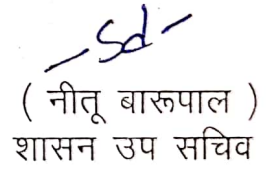 -Sd-
( नीतू बारूपाल )
शासन उप सचिव